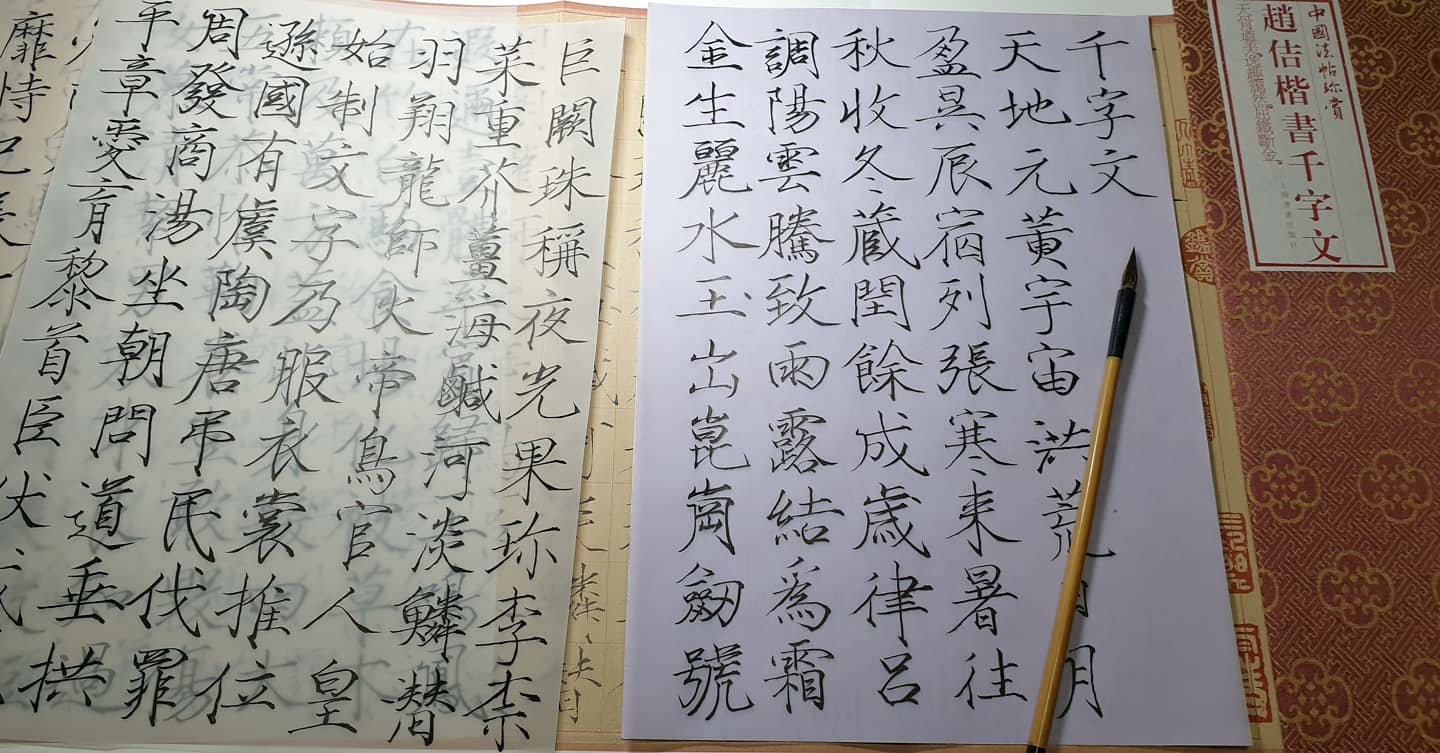 中國法帖珍賞
趙佶楷書千字文
天骨遒美逸趣靄然屈鐵斷金。
上海書畫出版社
千字文
天地元黃宇宙洪荒日月
盈昃辰宿列張寒來暑往
秋收冬藏閏餘成歲律呂
調陽雲騰致雨露結爲霜
金生麗水玉出崑崗劒號
巨闕珠稱夜光果珍李柰
菜重芥薑海鹹河淡鱗潛
羽翔龍師火帝鳥官人皇
始制文字乃服衣裳推位
遜國有虞陶唐弔民伐罪
周發商湯坐朝問道垂拱
平章愛育黎首臣伏戎
靡恃己長